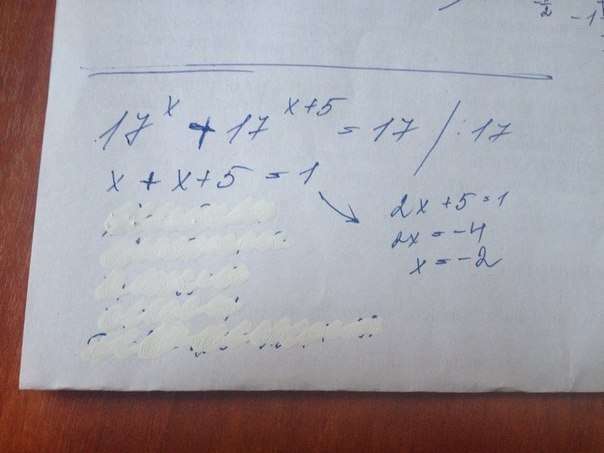 1/2 - 1
17^x + 17^(x+5) = 17 / :17
x + x + 5 = 1
2x + 5 = 1
2x = -4
x = -2